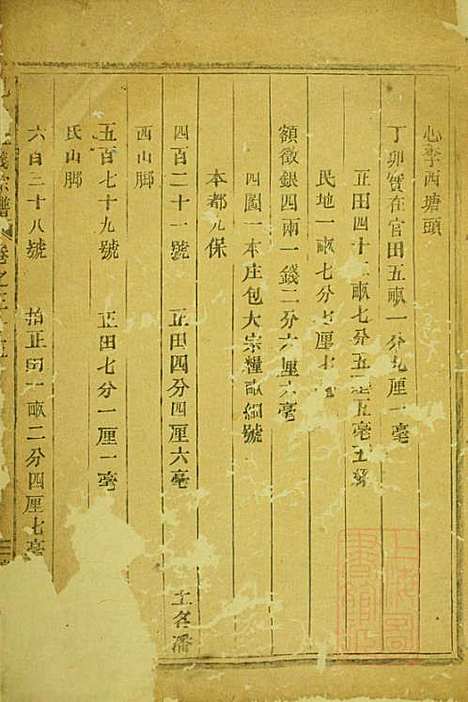 心李西塘頭
丁卯實在官田五畝一分九厘一毫
正田四十二畝七分五毫五絲
民地一畝七分七厘七
額徵銀四兩一錢二分六厘六毫
四圖一本庄包大宗糧畝細號
本都九保
四百二十一號 正田四分四厘六毫 土名潘
西山脚
五百七十九號 正田七分一厘一毫
氏山脚
六百三十八號 拾正田一畝二分四厘七毫
義宗譜 卷之三十五